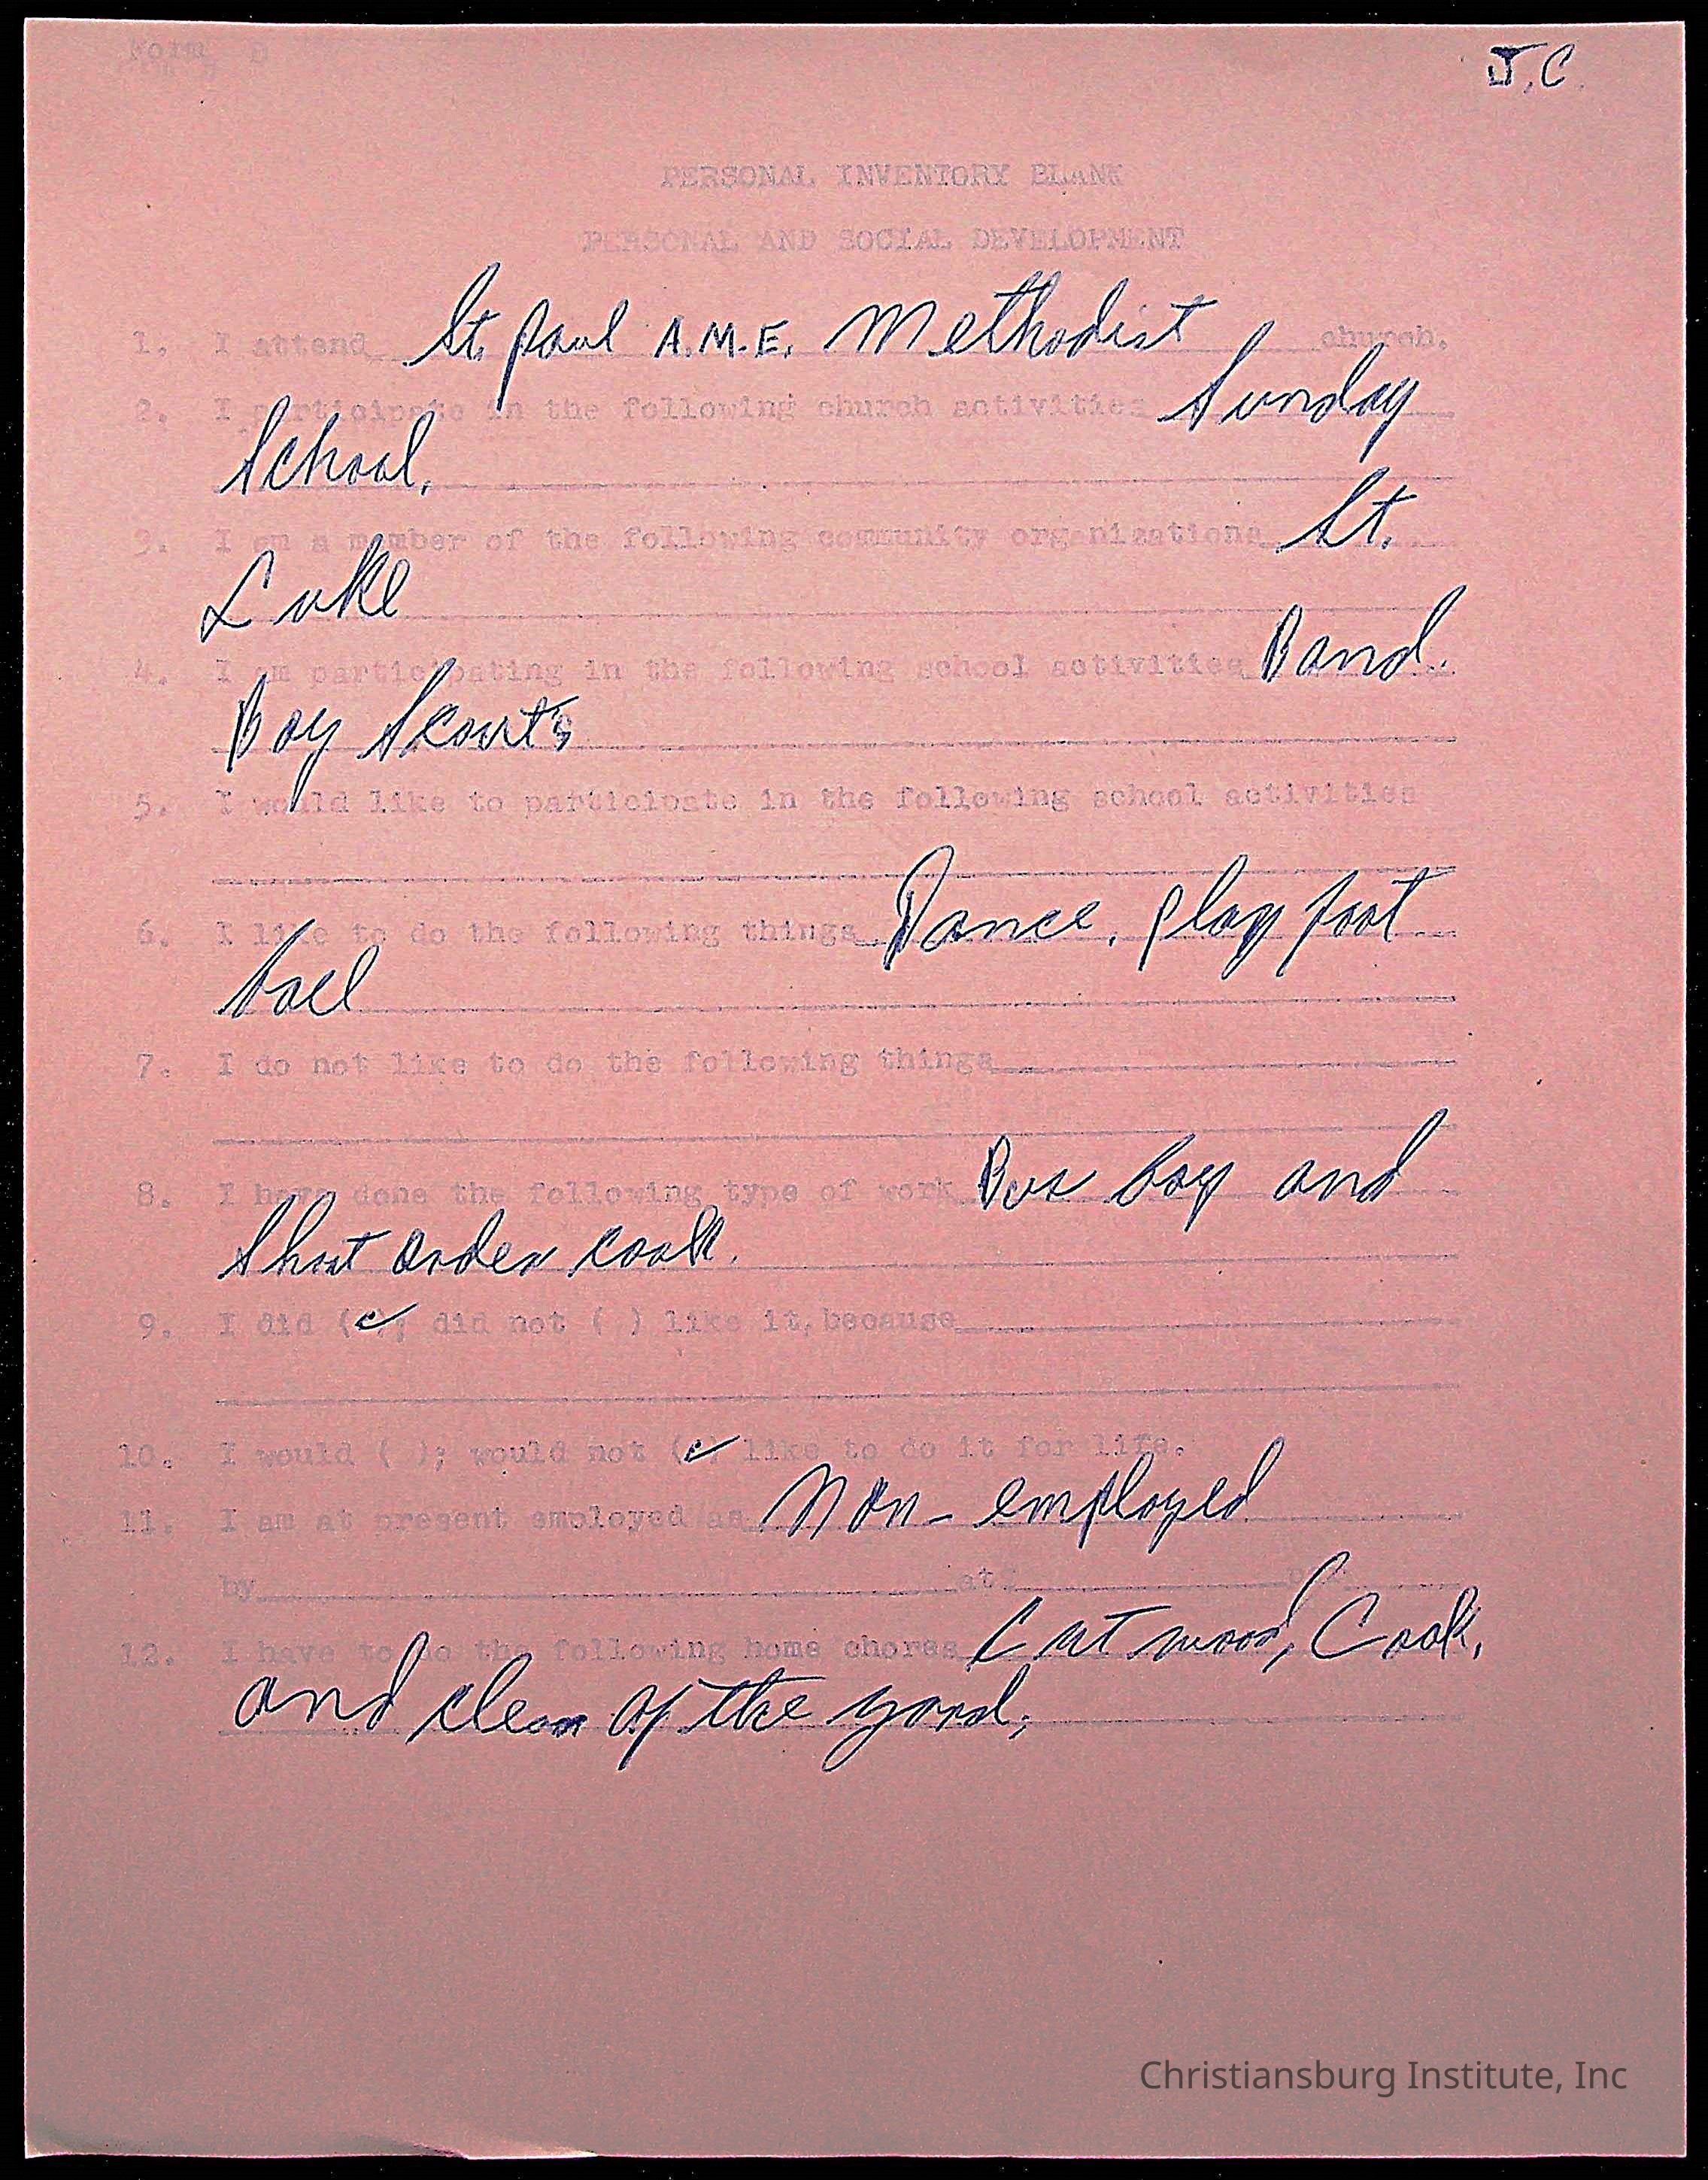 Form
J.C.
PERSONAL INVENTORY BLANK
PERSONAL AND SOCIAL DEVELOPMENT
1. I attend St. Paul A.M.E. Methodist church.
2. I participate in the following church activities Sunday
School.
3. I am a member of the following community organizations St.
Luke
4. I am participating in the following school activities Band.
Boy Scouts
5. I would like to participate in the following school activities
6. I like to do the following things Dance, play foot
ball
7. I do not like to do the following things
8. I have done the following type of work Bus boy and
Short order cook.
9. I did (✓); did not ( ) like it, because
10. I would ( ); would not (✓) like to do it for life.
11. I am at present employed as Non-employed
by at
12. I have to do the following home chores Cut wood, Cook,
and clean of the yard,
Christiansburg Institute, Inc